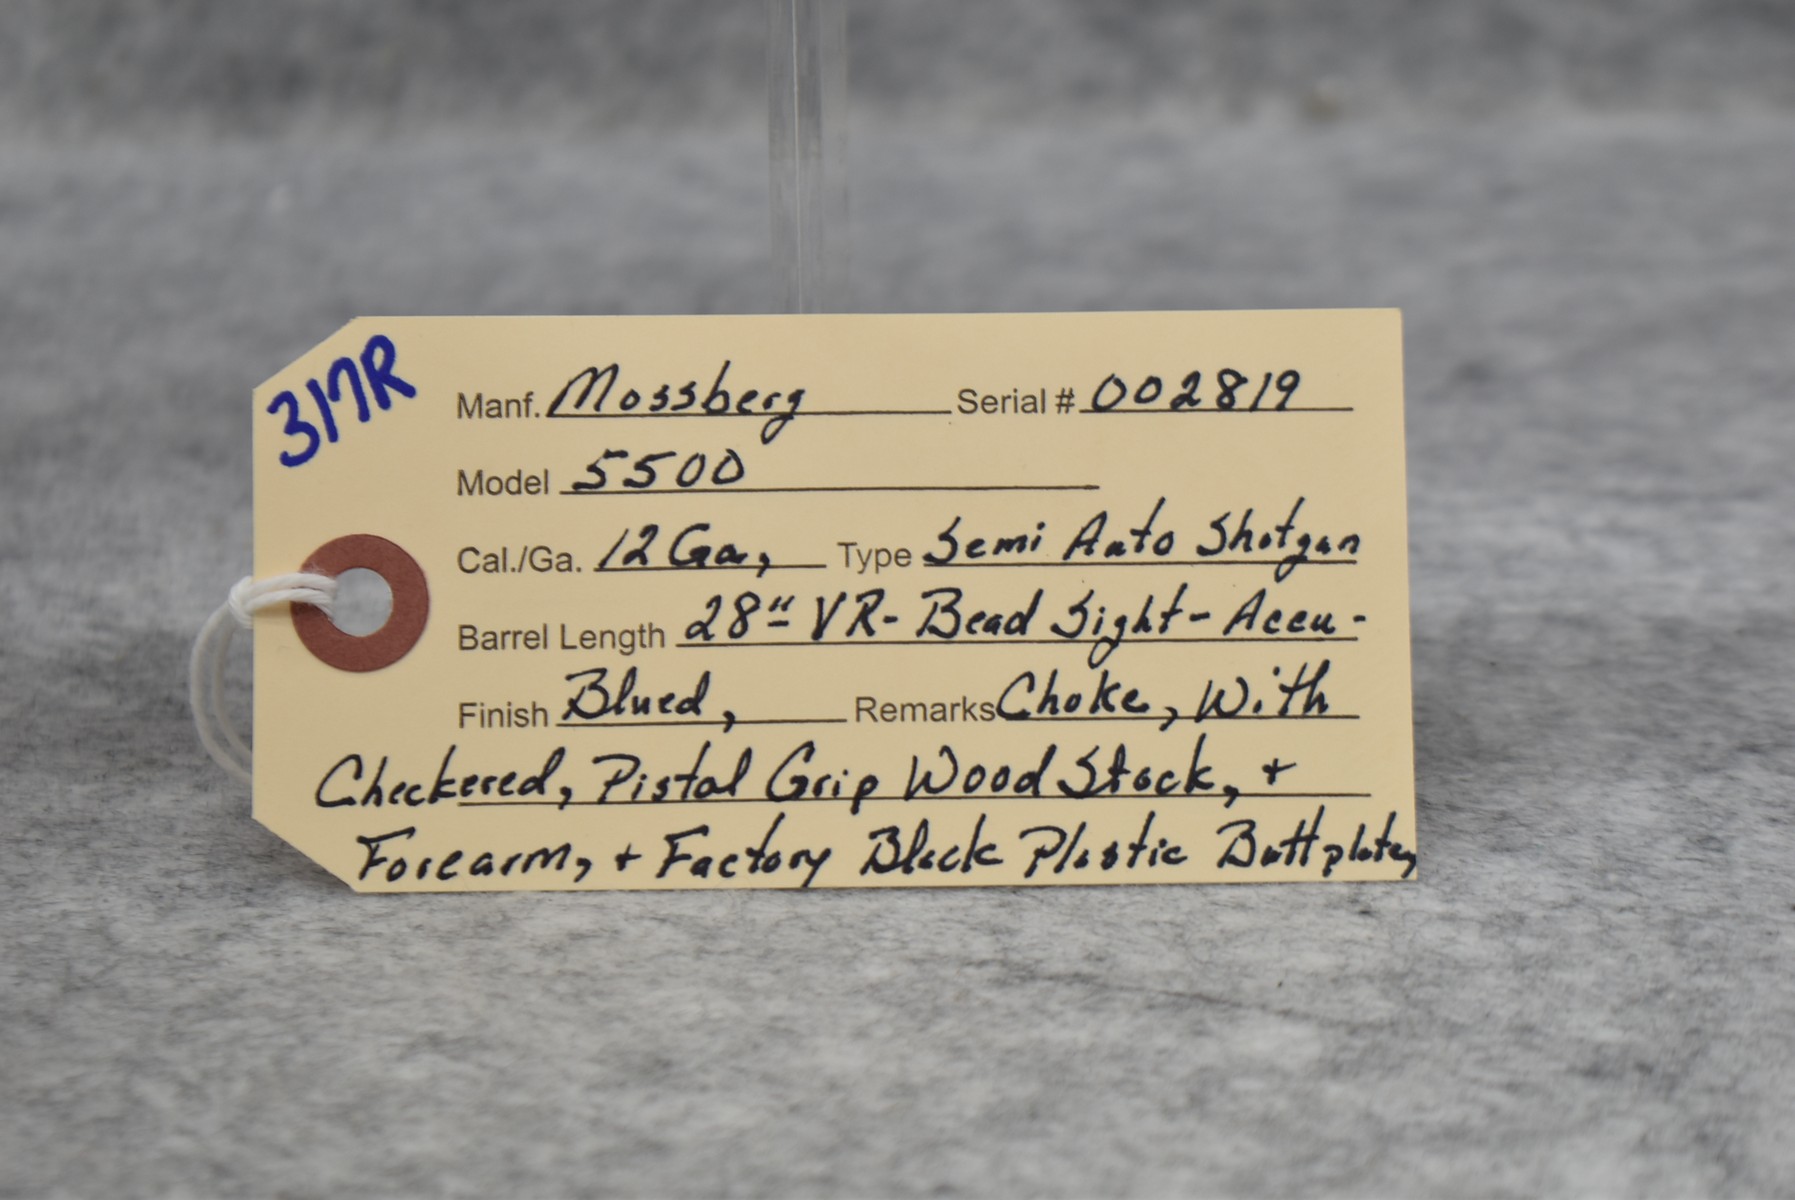 317R
Manf. Mossberg Serial # 002819
Model 5500
Cal./Ga. 12 Ga, Type Semi Auto Shotgun
Barrel Length 28" VR- Bead Sight- Accu-
Finish Blued, Remarks Choke, With
Checkered, Pistol Grip Wood Stock, +
Forearm, + Factory Black Plastic Buttplate,